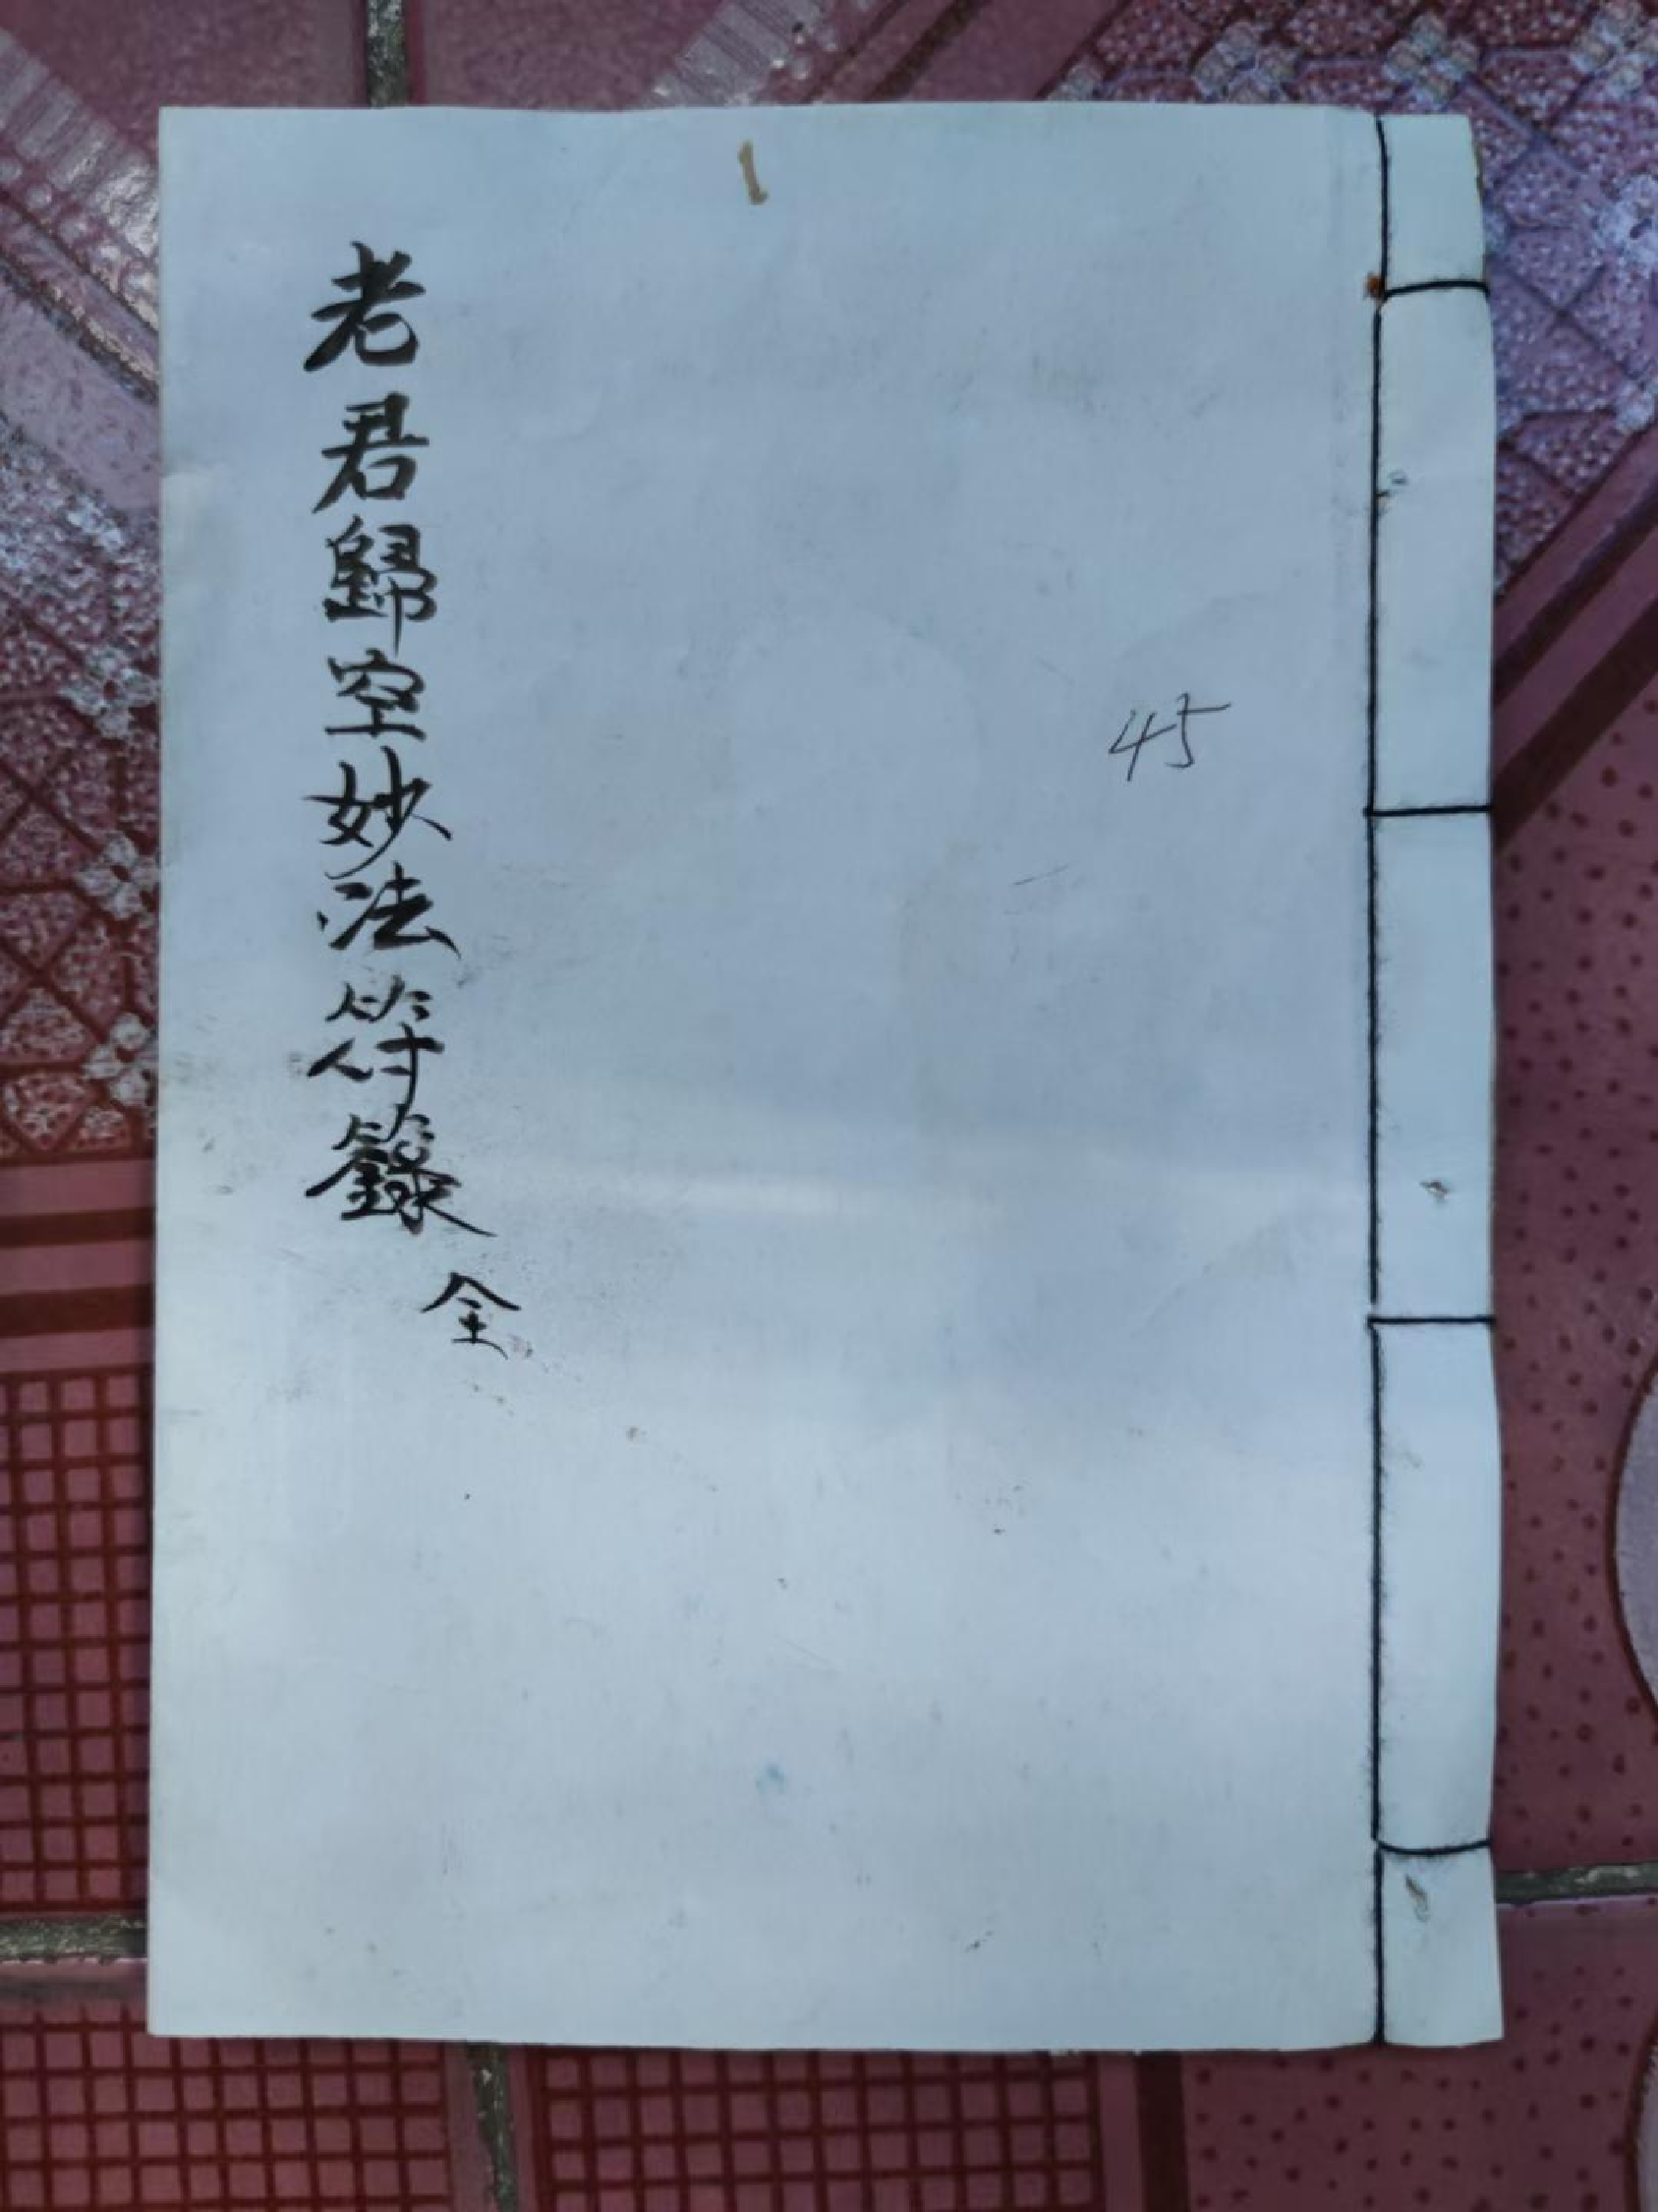 45
老君歸空妙法符籙全